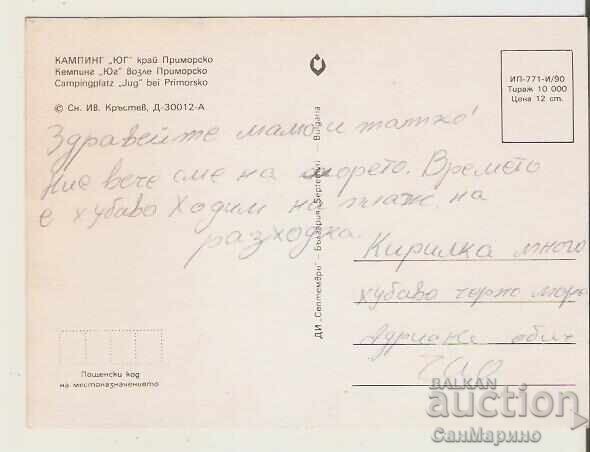 КАМПИНГ „ЮГ" край Приморско
Кемпинг „Юг" возле Приморско
Campingplatz „Jug" bei Primorsko
© Сн. Ив. Кръстев, Д-30012-А
ИП-771-И/90
Тираж 10 000
Цена 12 ст.
Здравейте мамо и татко!
Ние вече сме на морето. Времето
е хубаво Ходим на плаж, на
разходка.
ДИ „Септември" – България, Septemvri – Bulgaria
Кирилка много
хубаво черно море
Адриана обич
чао
Пощенски код
на местоназначението
BALKAN
auction
СанМарино